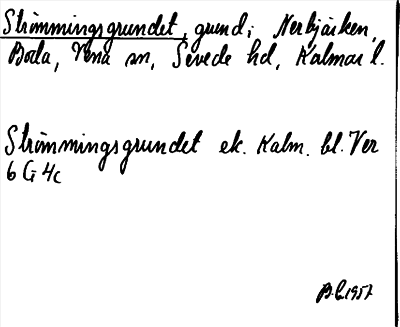 Strömmingsgrundet, grund i Nerbjärken,
Boda, Vena sn, Sevede hd, Kalmar l.
Strömmingsgrundet ek. Kalm. bl. Ver
6 G 4c
1957